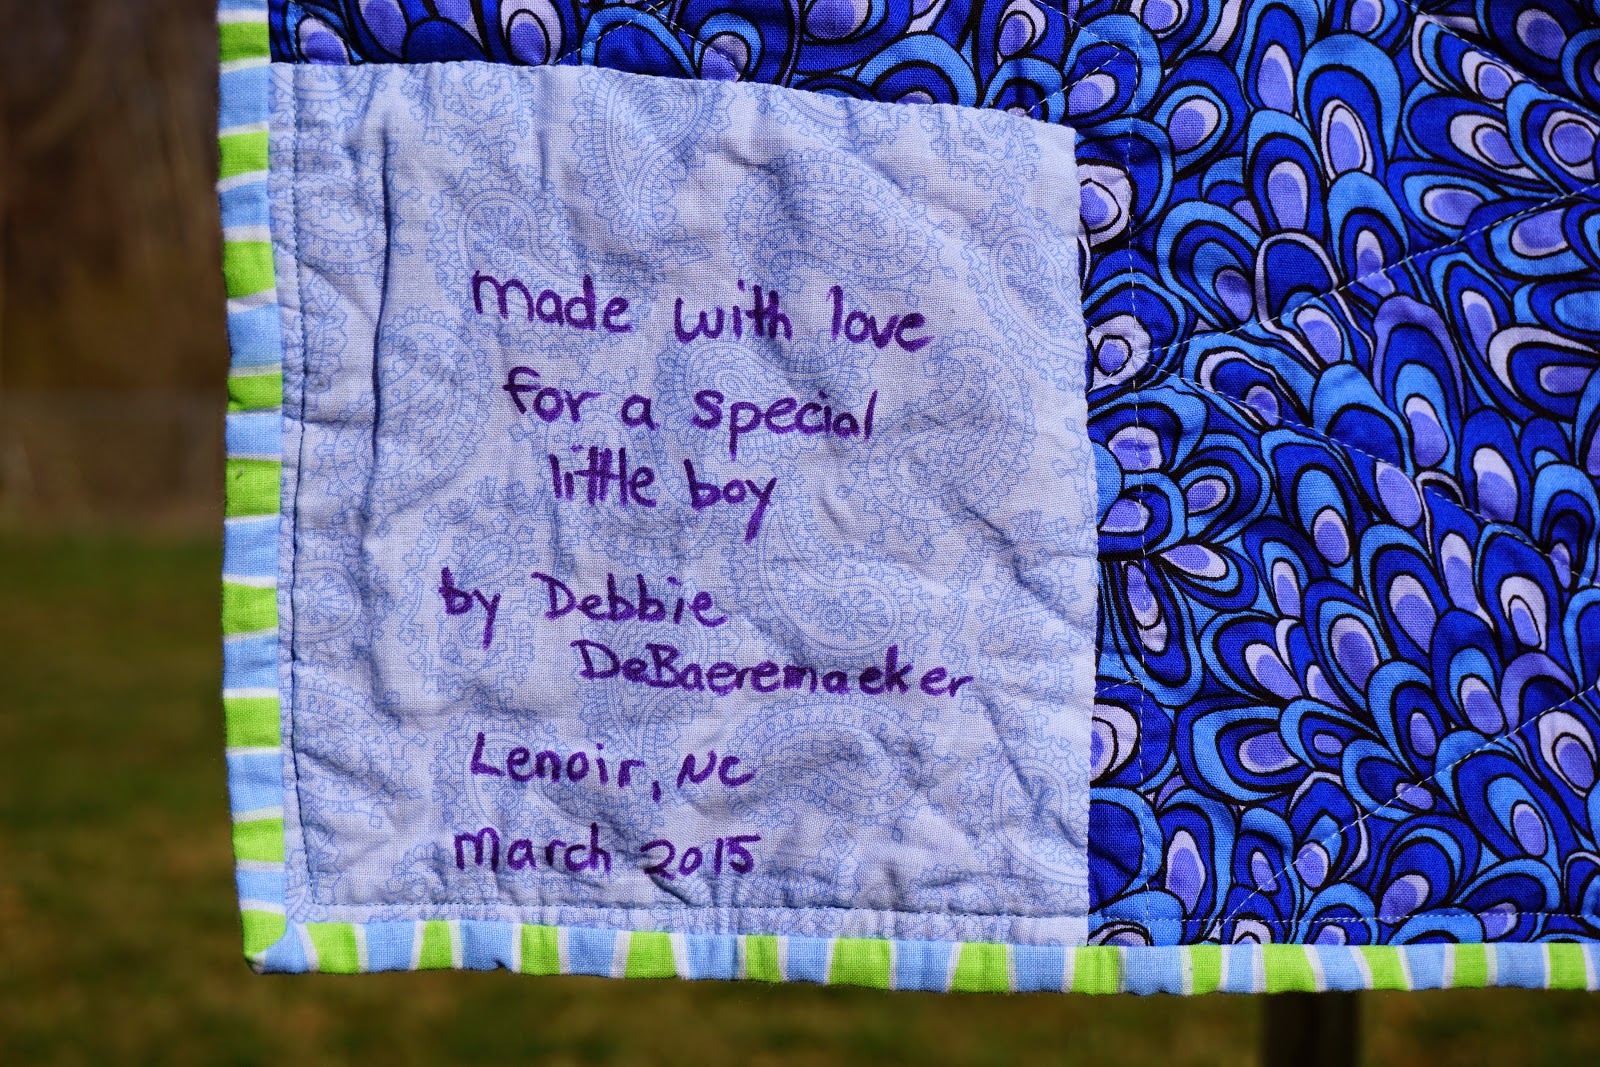 made with love
for a special
little boy
by Debbie
DeBaeremaeker
Lenoir, NC
March 2015